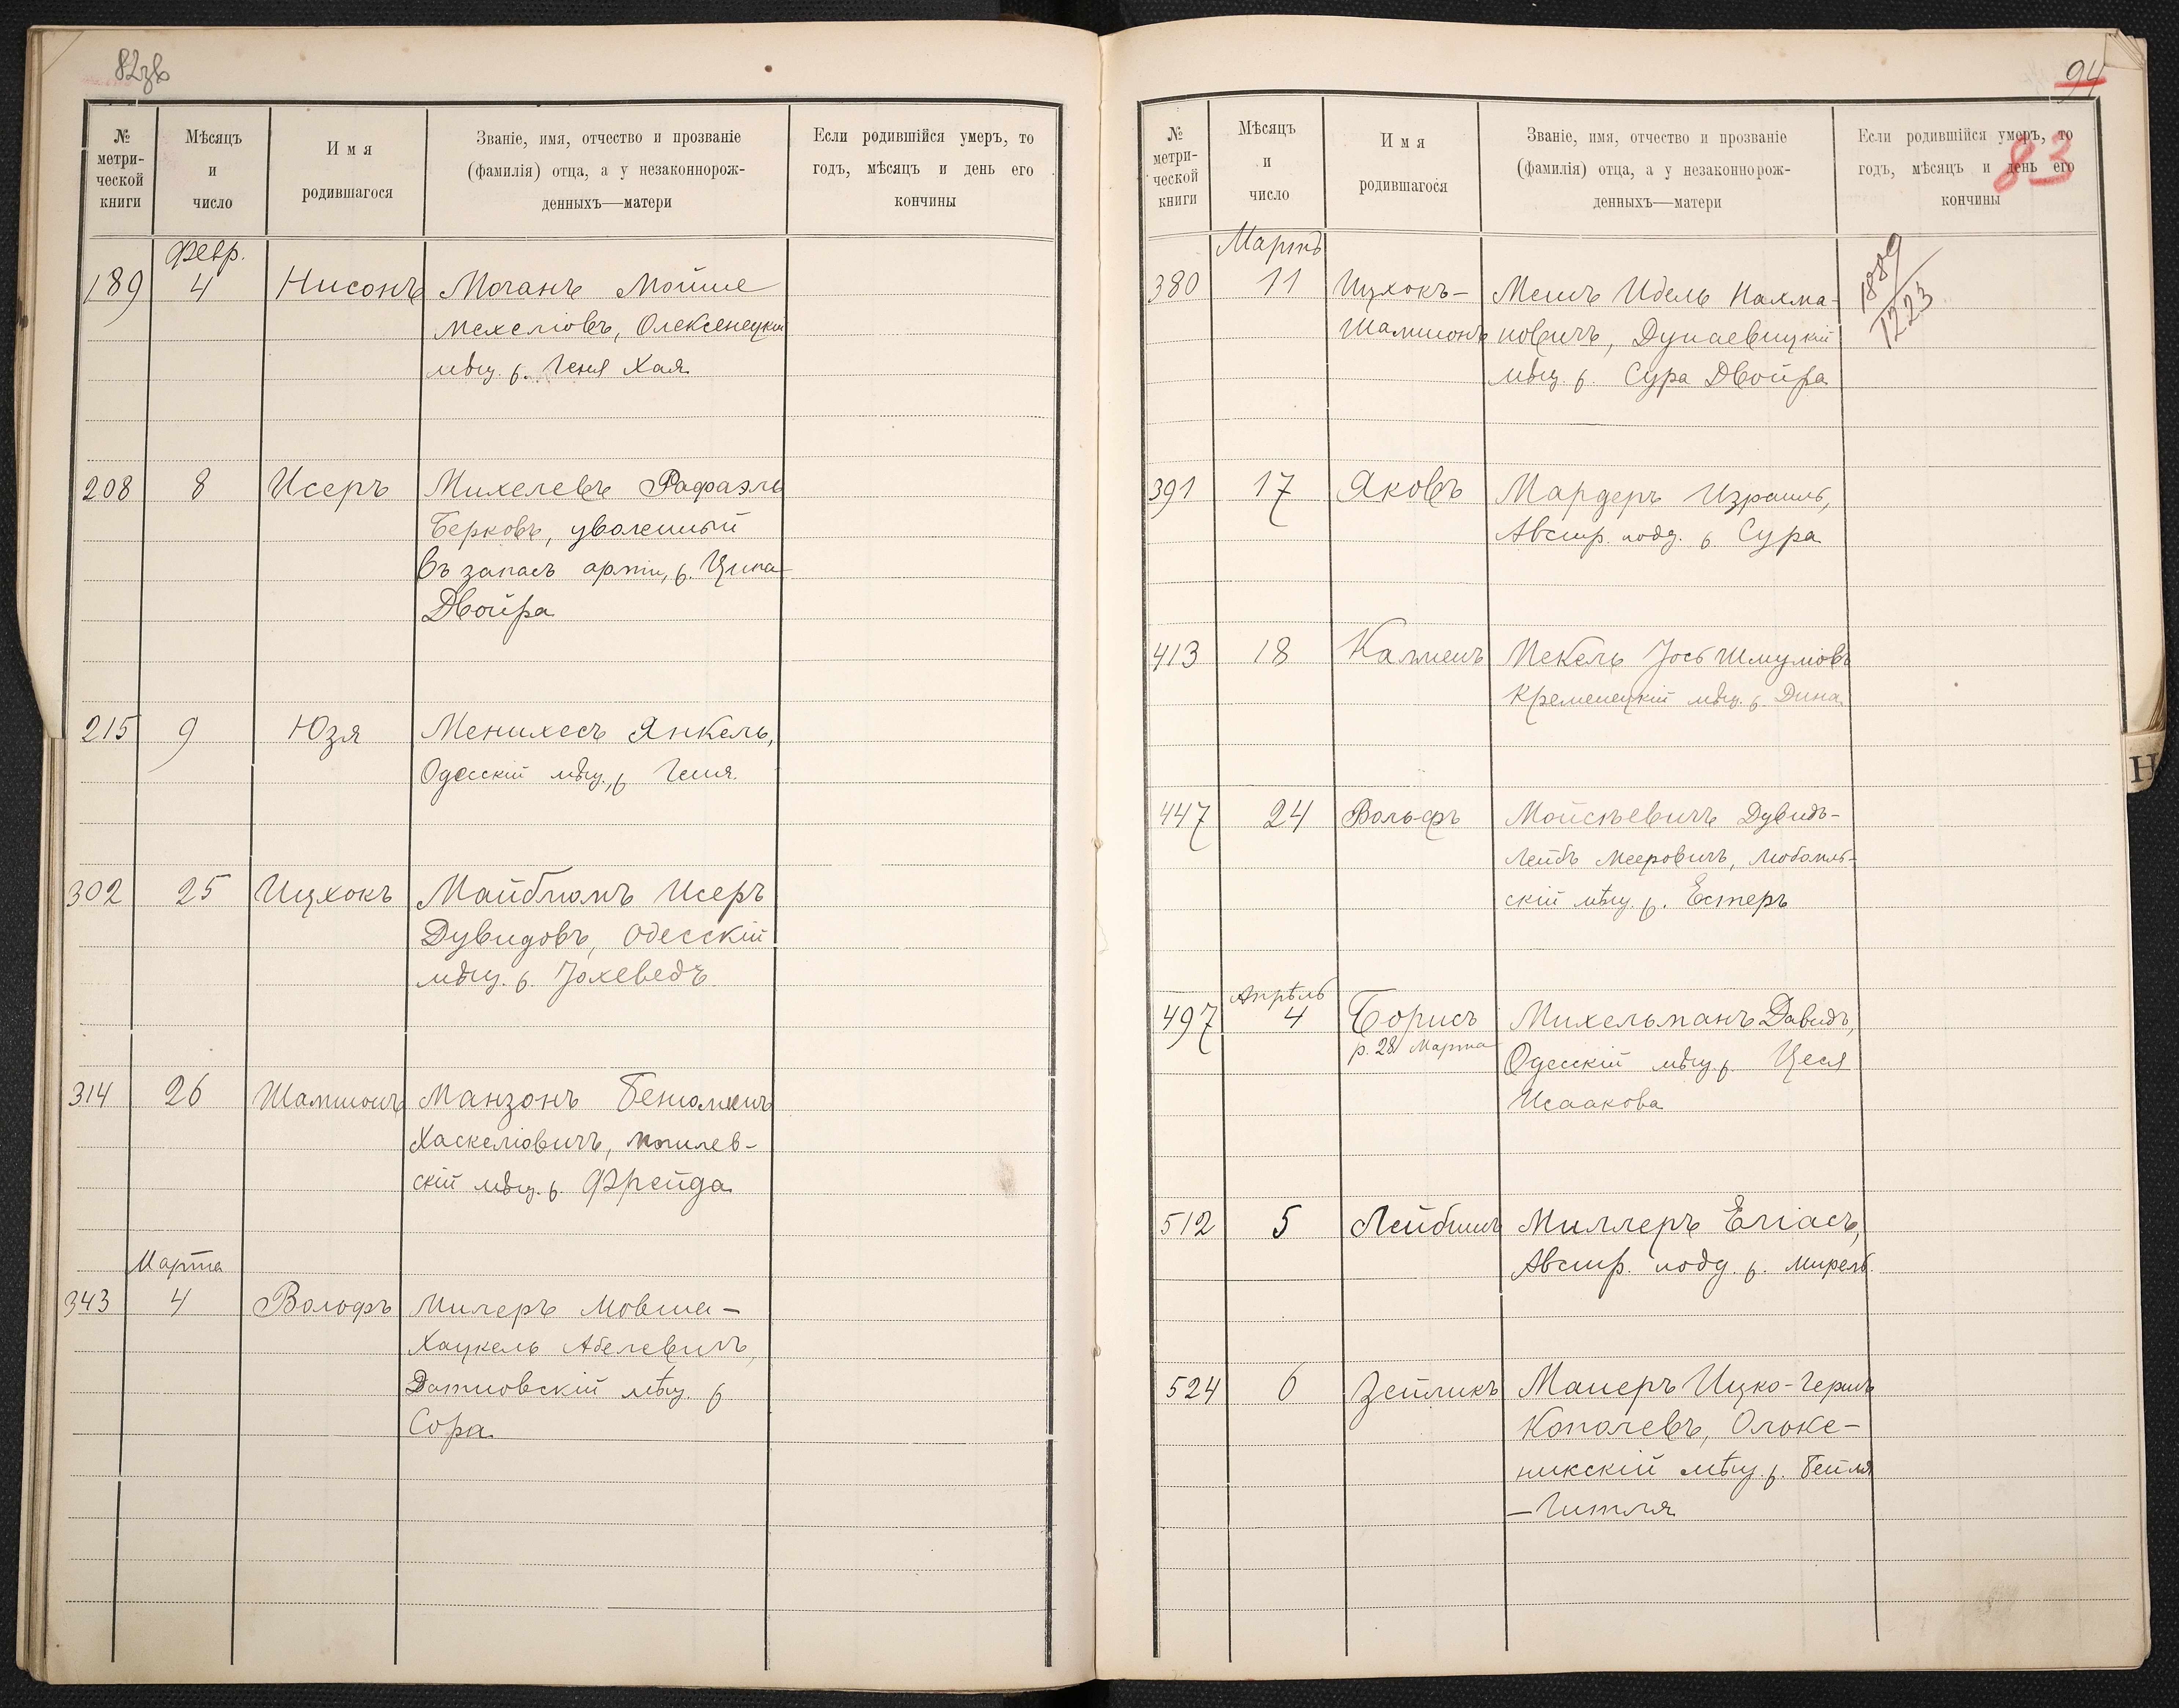 82зв
№ метрической книги
Мѣсяцъ и число
Имя родившагося
Званіе, имя, отчество и прозваніе
(фамилія) отца, а у незаконнорож-
денныхъ—матери
Если родившійся умеръ, то
годъ, мѣсяцъ и день его
кончины
Февр.
189 4 Нисонъ Моганъ Мойше
Мехеліовъ, Олексенецкій
мѣщ. ж. Геня Хая
208 8 Исеръ Михелевъ Рафаэль
Берковъ, уволенный
въ запасъ арміи, ж. Ципа
Двойра
215 9 Юзя Менихесъ Янкель,
Одесскій мѣщ., ж Геня.
302 25 Ицхокъ Майблюмъ Исеръ
Дувидовъ, Одесскій
мѣщ. ж. Іохеведъ
314 26 Шамшонъ Манзонъ Беніоминъ
Хаскеліовичъ, Могилев-
скій мѣщ. ж. Фрейда
Марта
343 4 Вольфъ Милеръ Мовша-
Хацкель Абелевичъ,
Датновскій мѣщ. ж
Сора
94
83
№ метрической книги
Мѣсяцъ и число
Имя родившагося
Званіе, имя, отчество и прозваніе
(фамилія) отца, а у незаконнорож-
денныхъ—матери
Если родившійся умеръ, то
годъ, мѣсяцъ и день его
кончины
Мартъ
380 11 Ицхокъ- Мешъ Идель Нахма-
1889
1223
Шамшонъ новичъ, Дунаевицкій
мѣщ. ж. Сура Двойра
391 17 Яковъ Мардеръ Израиль,
Австр. подд. ж Сура
413 18 Калменъ Мекель Іось Шмуліовъ
Кременецкій мѣщ. ж. Дина
447 24 Вольфъ Мойсѣевичъ Дувидъ-
Лейбъ Мееровичъ, Любомль-
скій мѣщ. ж. Естеръ
Апрѣль
497 4 Борисъ Михельманъ Давидъ,
р. 28 Марта
Одесскій мѣщ ж. Цеся
Исаакова
512 5 Лейбишъ Миллеръ Еліасъ,
Австр. подд. ж. Мирель
524 6 Зейликъ Маиеръ Ицко-Гершъ
Копелевъ, Олькe-
никскій мѣщ. ж. Бейля
-Гитля
Н